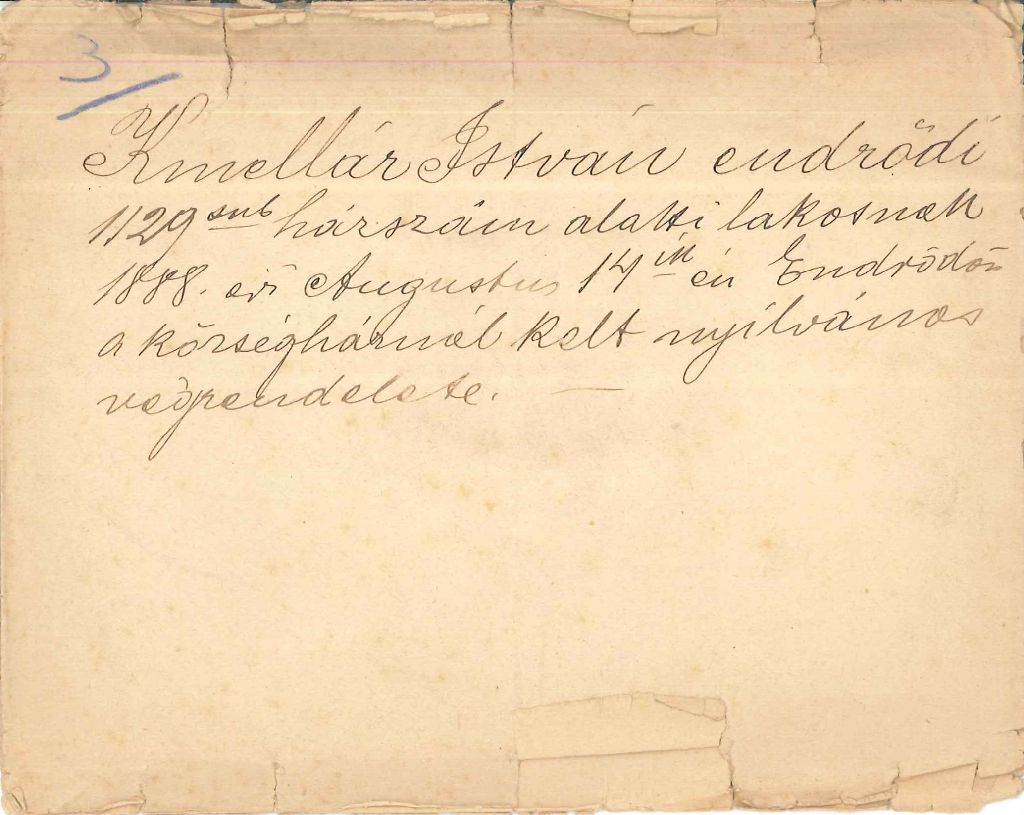 3
Kmellár István endrődi
1129 sub házszám alatti lakosnak
1888. évi Augustus 14 ik én Endrődön
a községházánál kelt nyilvános
végrendelete. —